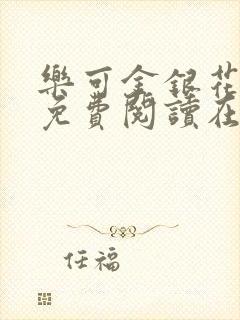 樂可金銀花
免費閱讀在
任福